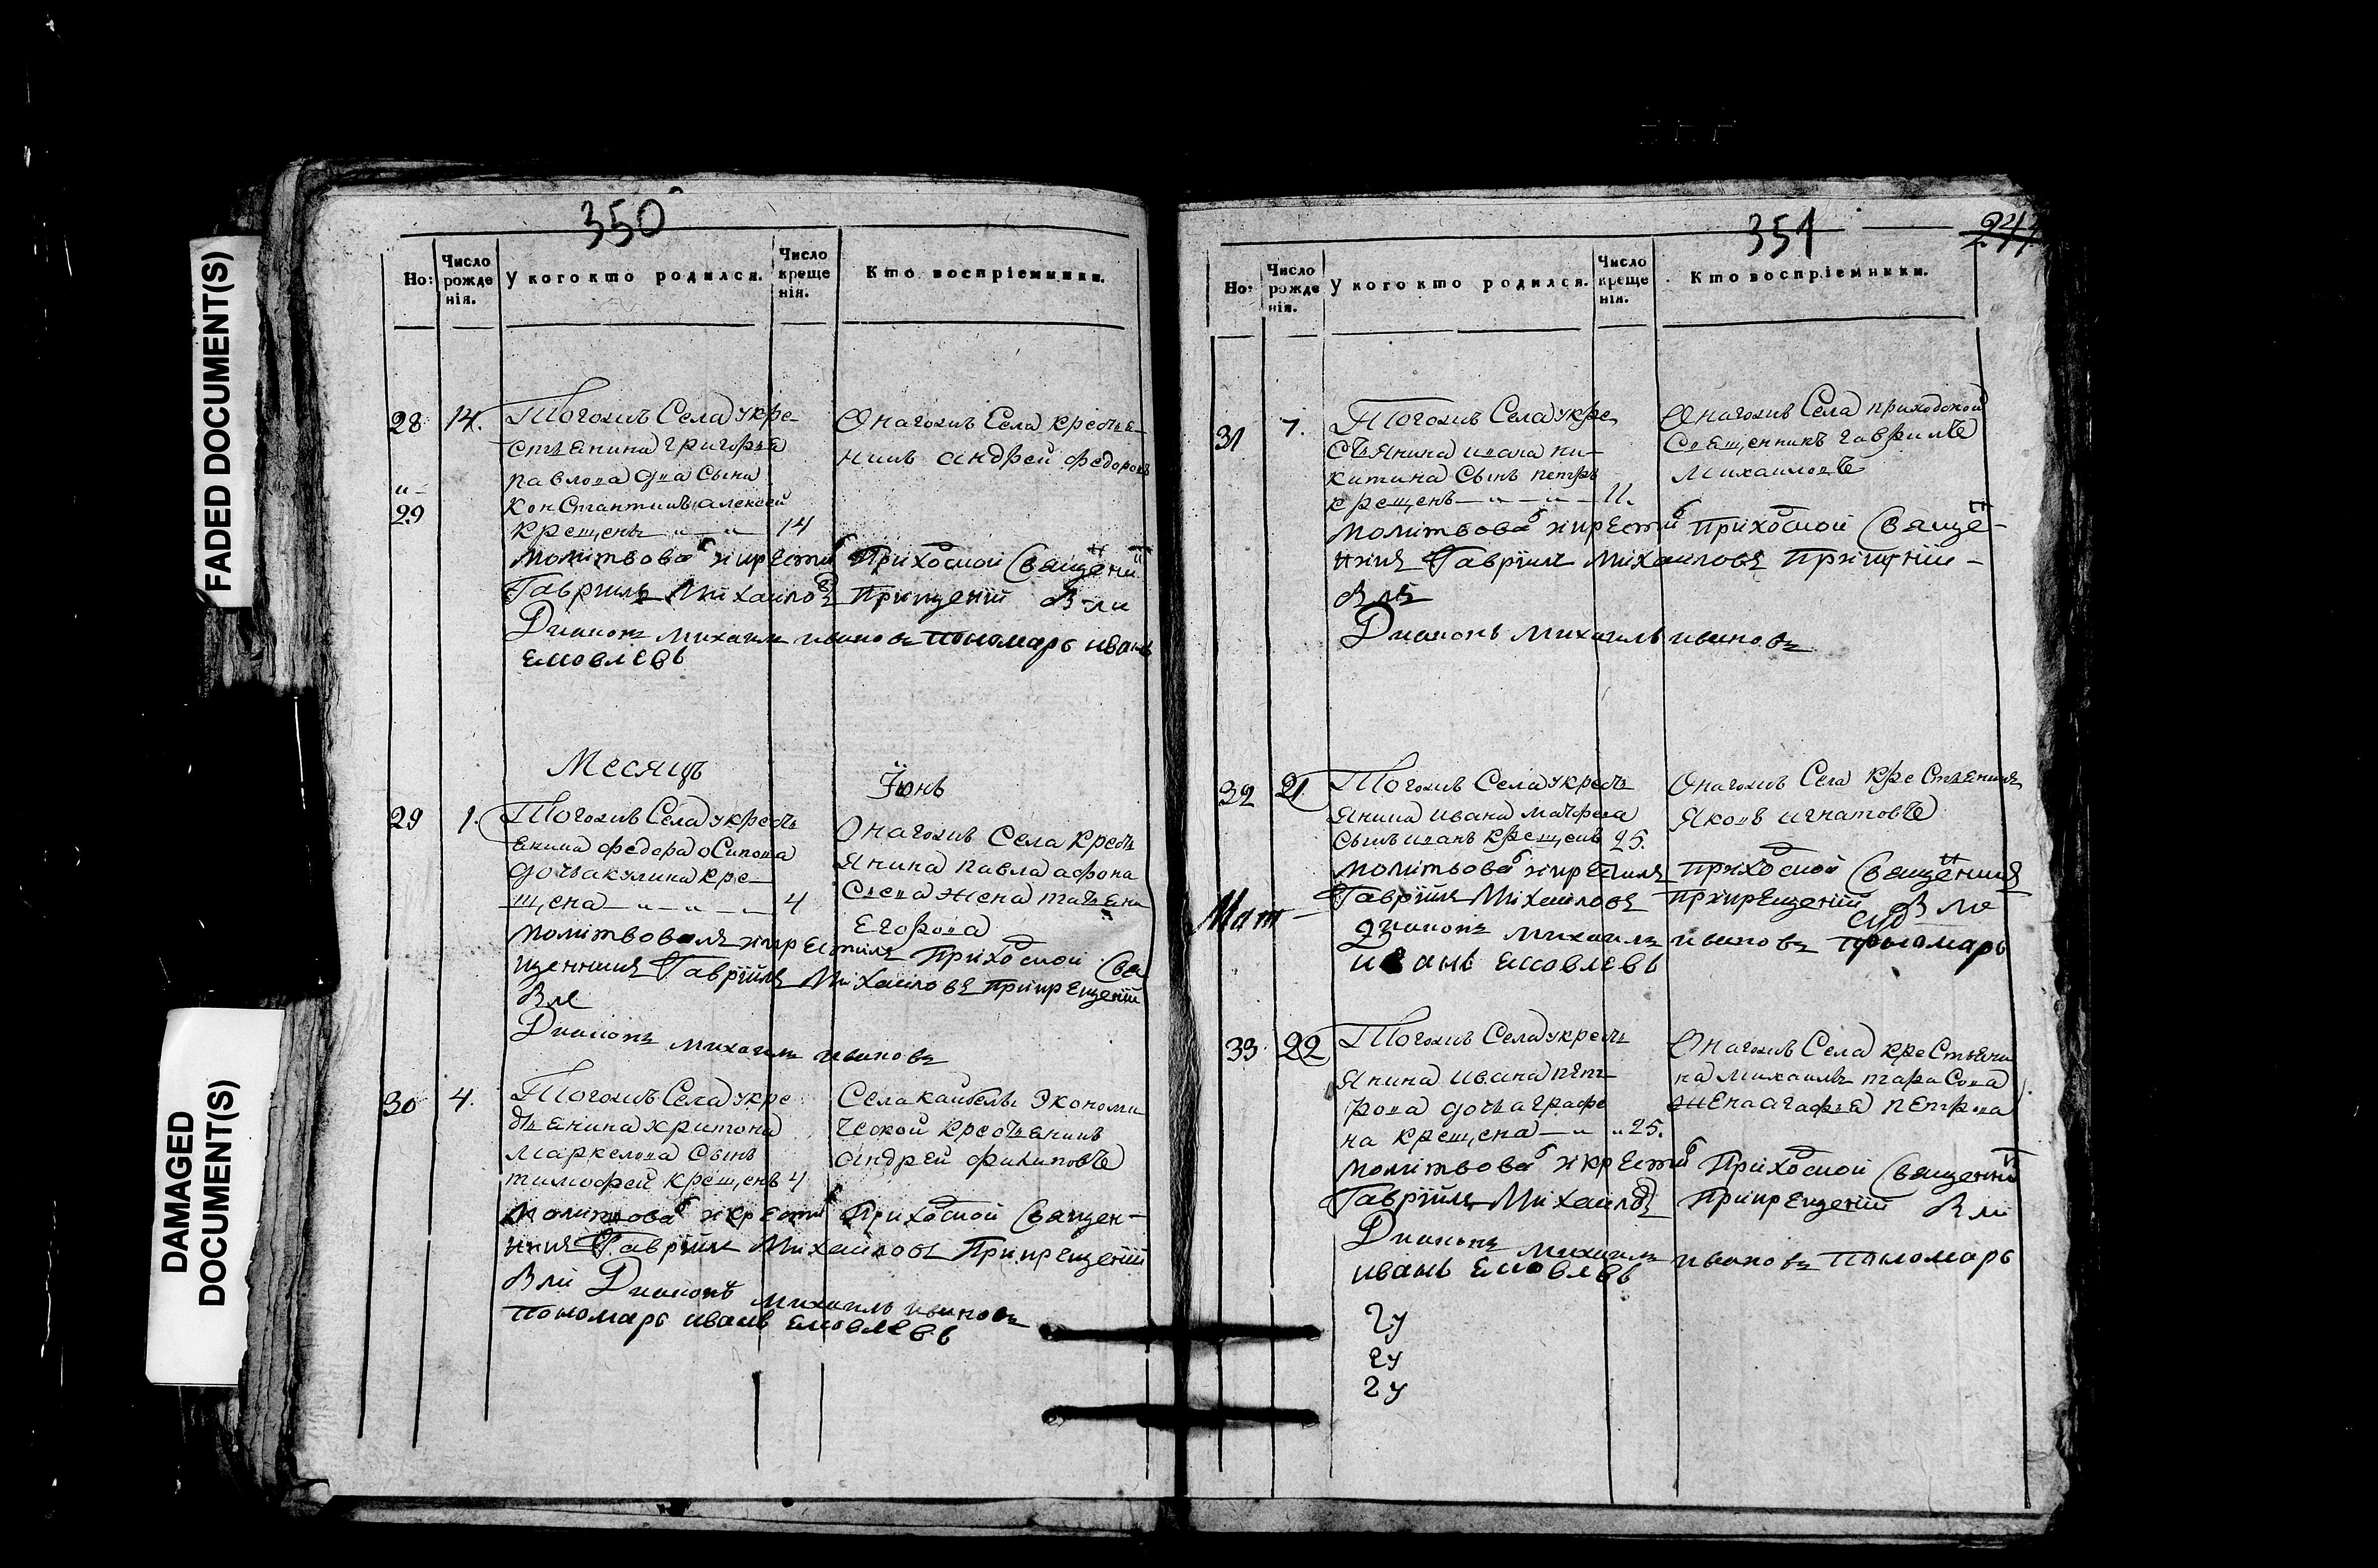 FADED DOCUMENT(S)
DAMAGED
DOCUMENT(S)
350
Но:
Число рожде нія.
У кого кто родился.
Число креще нія.
Кто воспріемники.
28 14. Тогожъ Села укре-
стьянина григорья
павлова два Сына
и-
29
константинъ алексей
крещенъ — „ — „ 14
Онагожъ Села крестья-
нинъ андрей федоровъ
молитвовал и крестил Приходской Священни
Гавриилъ Михаилов При крещении Были
Диаконъ михаилъ ивановъ пономарь иванъ
яковлевъ
Месяцъ Їюнь
29 1. Тогожъ Села укресть
янина федора осипова
дочь акулина кре-
щена — „ — „ — 4
Онагожъ Села кресть
янина павла афона
сьева жена татьяна
егорова
молитвовалъ и крестилъ Приходской Свя
щенникъ Гавриилъ Михаиловъ при крещении
Были
Диаконъ михаилъ ивановъ
30 4. Тогожъ Села укре
стьянина харитона
маркелова Сынъ
тимофей крещенъ 4
Села каибелы Экономи
ческой крестьянинъ
андрей филиповъ
молитвовал и крестил Приходской Священ-
никъ Гавриилъ Михаиловъ При крещении
Были Диаконъ михаилъ ивановъ
пономарь иванъ яковлевъ
351
Но:
Число рожде нія.
У кого кто родился.
Число креще нія.
Кто воспріемники.
31 7. Тогожъ Села укре
стьянина ивана ни-
китина Сынъ петръ
крещенъ — „ — „ — 11.
Онагожъ Села приходской
Священникъ гаврилъ
михаиловъ
молитвовал и крестил приходской Священ-
никъ Гавриилъ Михаиловъ
Были
Диаконъ михаилъ ивановъ
32 21 Тогожъ Села укресть
янина ивана матфеева
Сынъ иванъ крещенъ 25.
Онагожъ Села крестьянинъ
яковъ игнатовъ
молитвовал и крестилъ приходской Священникъ
Гавриилъ Михаиловъ При крещении Были
диаконъ михаилъ ивановъ пономарь
иванъ яковлевъ
33 22 Тогожъ Села укресть
янина ивана пет-
рова дочь аграфе
на крещена — „ „ 25.
Онагожъ Села крестьяни
на михаила тарасова
жена агафья петрова
молитвовал и крестил Приходской Священни
Гавриилъ Михаилов При крещении Были
Диаконъ михаилъ ивановъ пономарь
иванъ яковлевъ